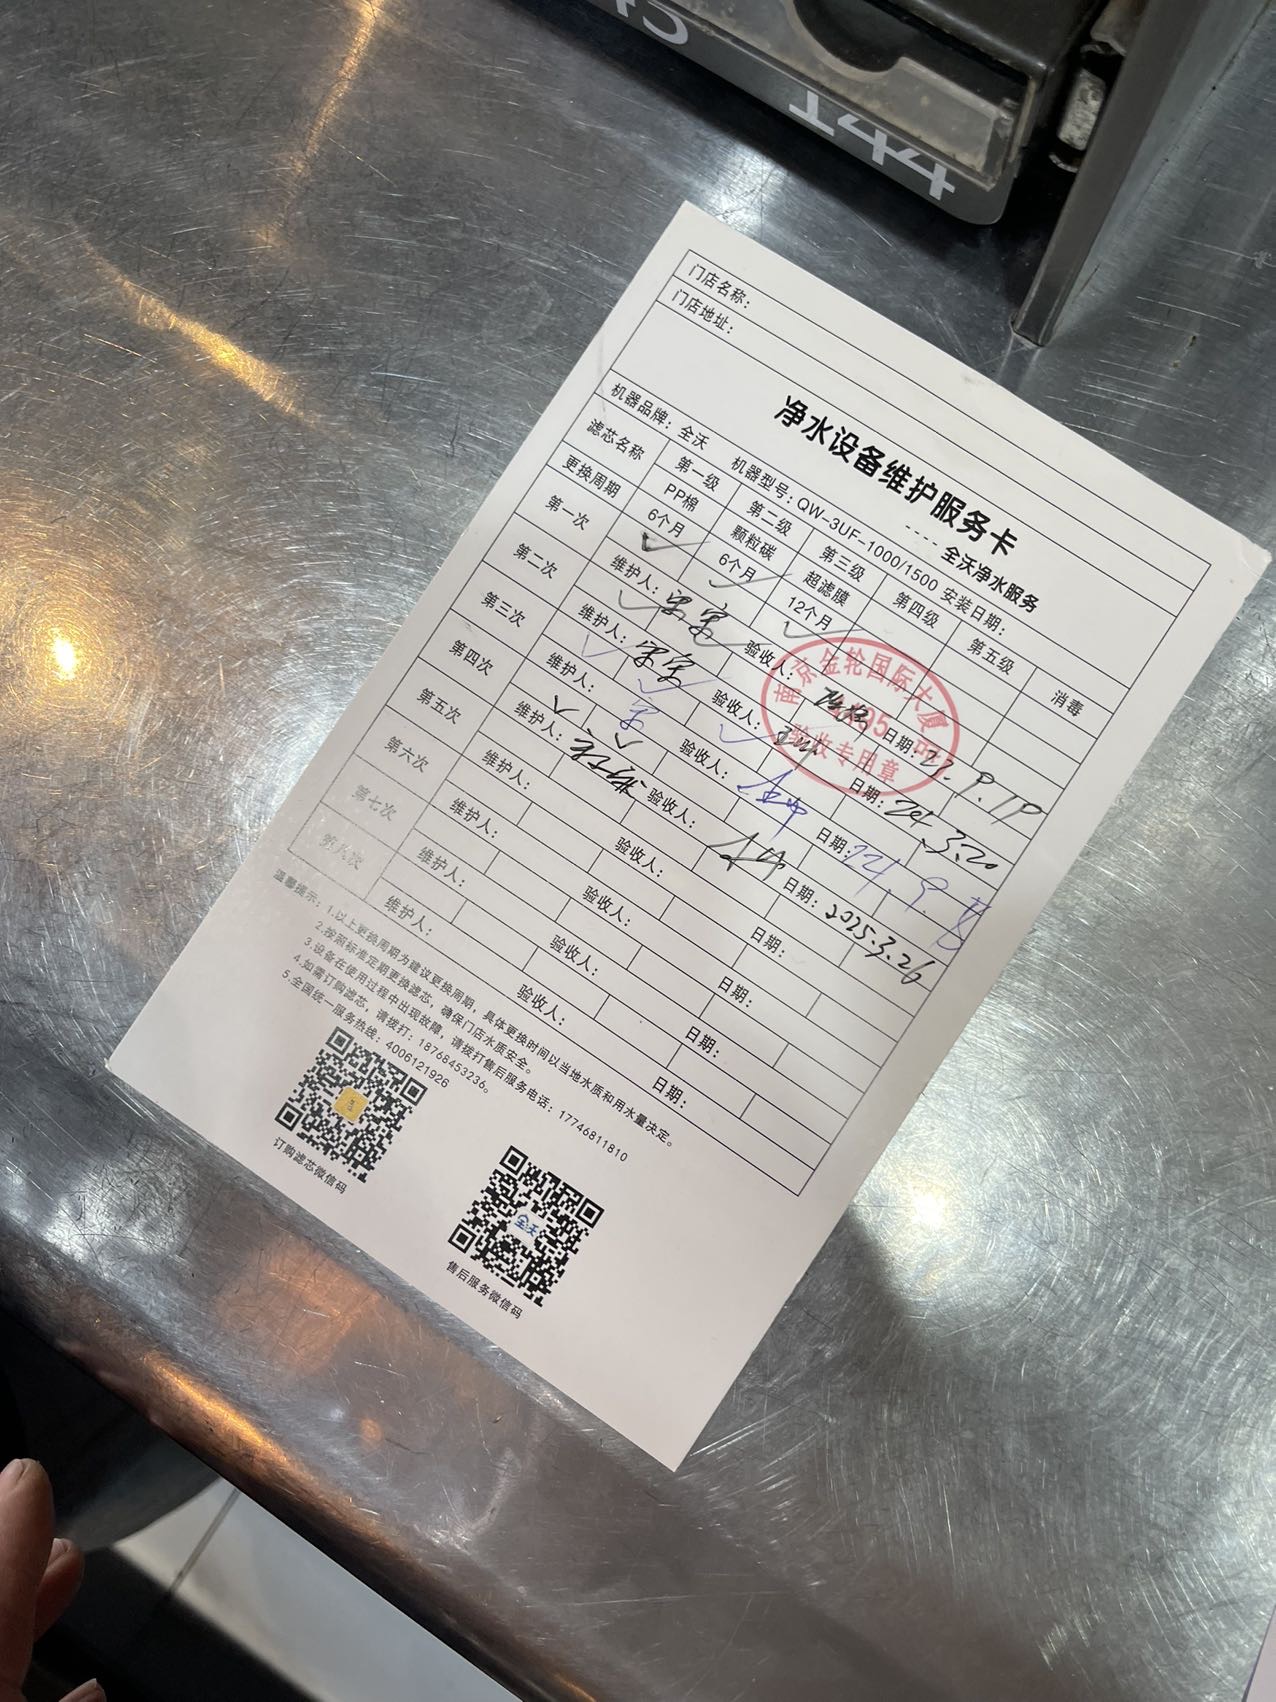 门店名称：
门店地址：
净水设备维护服务卡
---- 全沃净水服务
机器品牌：全沃 机器型号：QW-3UF-1000/1500 安装日期：
滤芯名称 第一级 第二级 第三级 第四级 第五级 消毒
PP棉 颗粒碳 超滤膜
更换周期 6个月 6个月 12个月
第一次 ✓ ✓ ✓
维护人： 验收人： 日期：23.9.19
第二次 ✓
维护人： 验收人： 日期：24.3.20
第三次 ✓ ✓ ✓
维护人：宋 验收人： 日期：24.9.
第四次 ✓ ✓
维护人： 验收人： 日期：2025.3.26
第五次
维护人： 验收人： 日期：
第六次
维护人： 验收人： 日期：
第七次
维护人： 验收人： 日期：
第八次
维护人： 验收人： 日期：
南京金轮国际大厦
验收专用章
温馨提示：1.以上更换周期为建议更换周期，具体更换时间以当地水质和用水量决定。
2.按照标准定期更换滤芯，确保门店水质安全。
3.设备在使用过程中出现故障，请拨打售后服务电话：17746811810
4.如需订购滤芯，请拨打：18768453236。
5.全国统一服务热线：4006121926
订购滤芯微信码
全沃
售后服务微信码